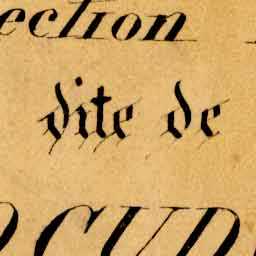 ection
dite de
OCUD